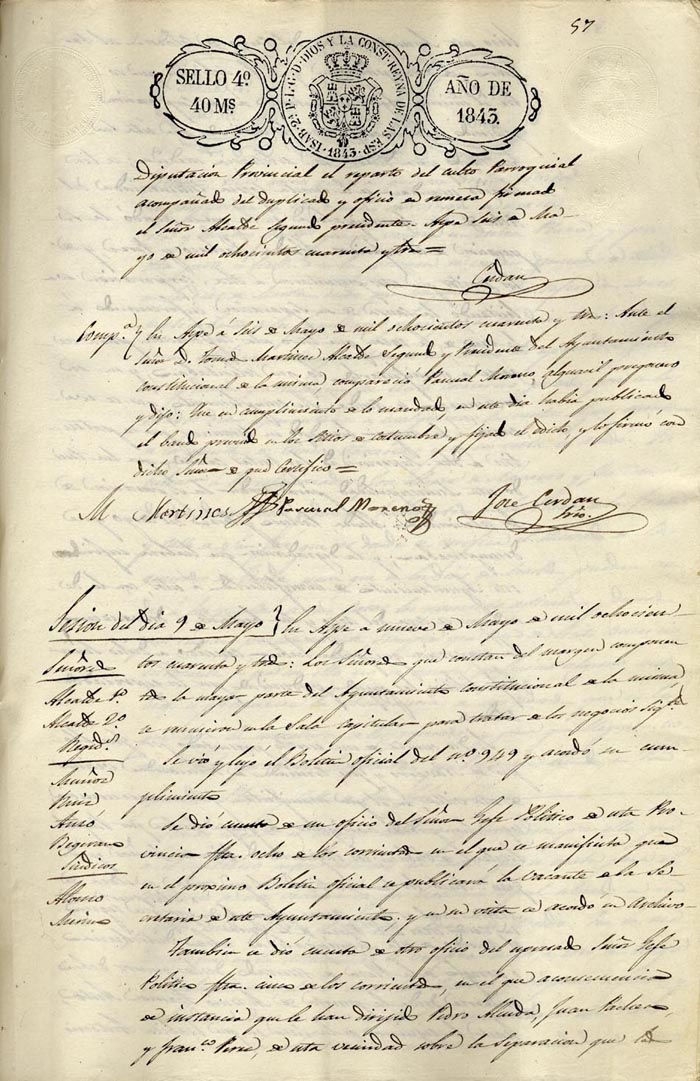 57
SELLO 4º
40 Ms
ISAB. 2ª P. L. G. D. DIOS Y LA CONST. REYNA DE LAS ESP.
1843
AÑO DE
1843.
Diputacion Provincial el reparto del culto Parroquial
acompañado del duplicado y oficio de remesa firmado
el Señor Alcalde Segundo presidente. Aspe Seis de Ma
yo de mil ochocientos cuarenta y tres =
Cerdan
Comp.ª } En Aspe á Seis de Mayo de mil ochocientos cuarenta y tres: Ante el
Señor D. Tomas Martinez Alcalde Segundo y Presidente del Ayuntamiento
constitucional de la misma comparecio Pascual Moreno, alguacil pregonero
y dijo: Que en cumplimiento de lo mandado, en este dia habia publicado
el bando prevenido en los Sitios de costumbre y fijado el edicto, y lo firmó con
dicho Señor de que Certifico =
M Martines Pascual Moreno Jose Cerdan
Srio.
Sesion del dia 9 de Mayo } En Aspe a nueve de Mayo de mil ochocien
tos cuarenta y tres: Los Señores que constan del margen componen
tes la mayor parte del Ayuntamiento constitucional de la misma
se reunieron en la Sala capitular para tratar de los negocios Sig.tes
Señores
Alcalde 1º
Alcalde 2º
Regid.s
Muñoz
Ruiz
Asnó
Begerano
Sindicos
Alonso
Se vió y leyó el Boletin oficial del nº 949 y acordó su cum
plimiento
Se dió cuenta de un oficio del Señor Jefe Politico de esta Pro
vincia fha. ocho de los corrientes en el que se manifiesta que
en el proximo Boletin oficial se publicará la vacante de la Se
cretaria de este Ayuntamiento, y en su vista se acordó su Archivo
Tambien se dió cuenta de otro oficio del espresado Señor Jefe
Politico fha. cinco de los corrientes, en el que a consecuencia
de instancia que le han dirigido Pedro Alcada, Juan Pacheco
y Fran.co Perez, de esta vecindad sobre la Separacion que les